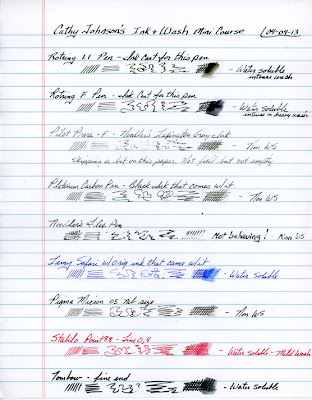 Cathy Johnson's Ink & Wash Mini Course (04-04-13
Rotring 1.1 Pen - Ink Cart for this pen
- Water soluble
intense wash
Rotring F Pen - Ink Cart for this pen
- Water soluble
intense in heavy wash
Pilot - F - Noodler's Lexington Gray Ink
- Non WS
skipping a bit on this paper. Not full but not empty
Platinum Carbon Pen - Black ink that comes w/it
- Non WS
Noodler's Flex Pen
Not behaving! - Non WS
Lamy Safari w/orig ink that came w/it
- Water Soluble
Pigma Micron 05 nib size
- Non WS
Stabilo Point 88 - Fine 0,4
- Water soluble - Mild Wash
Tombow - fine end
- Water soluble